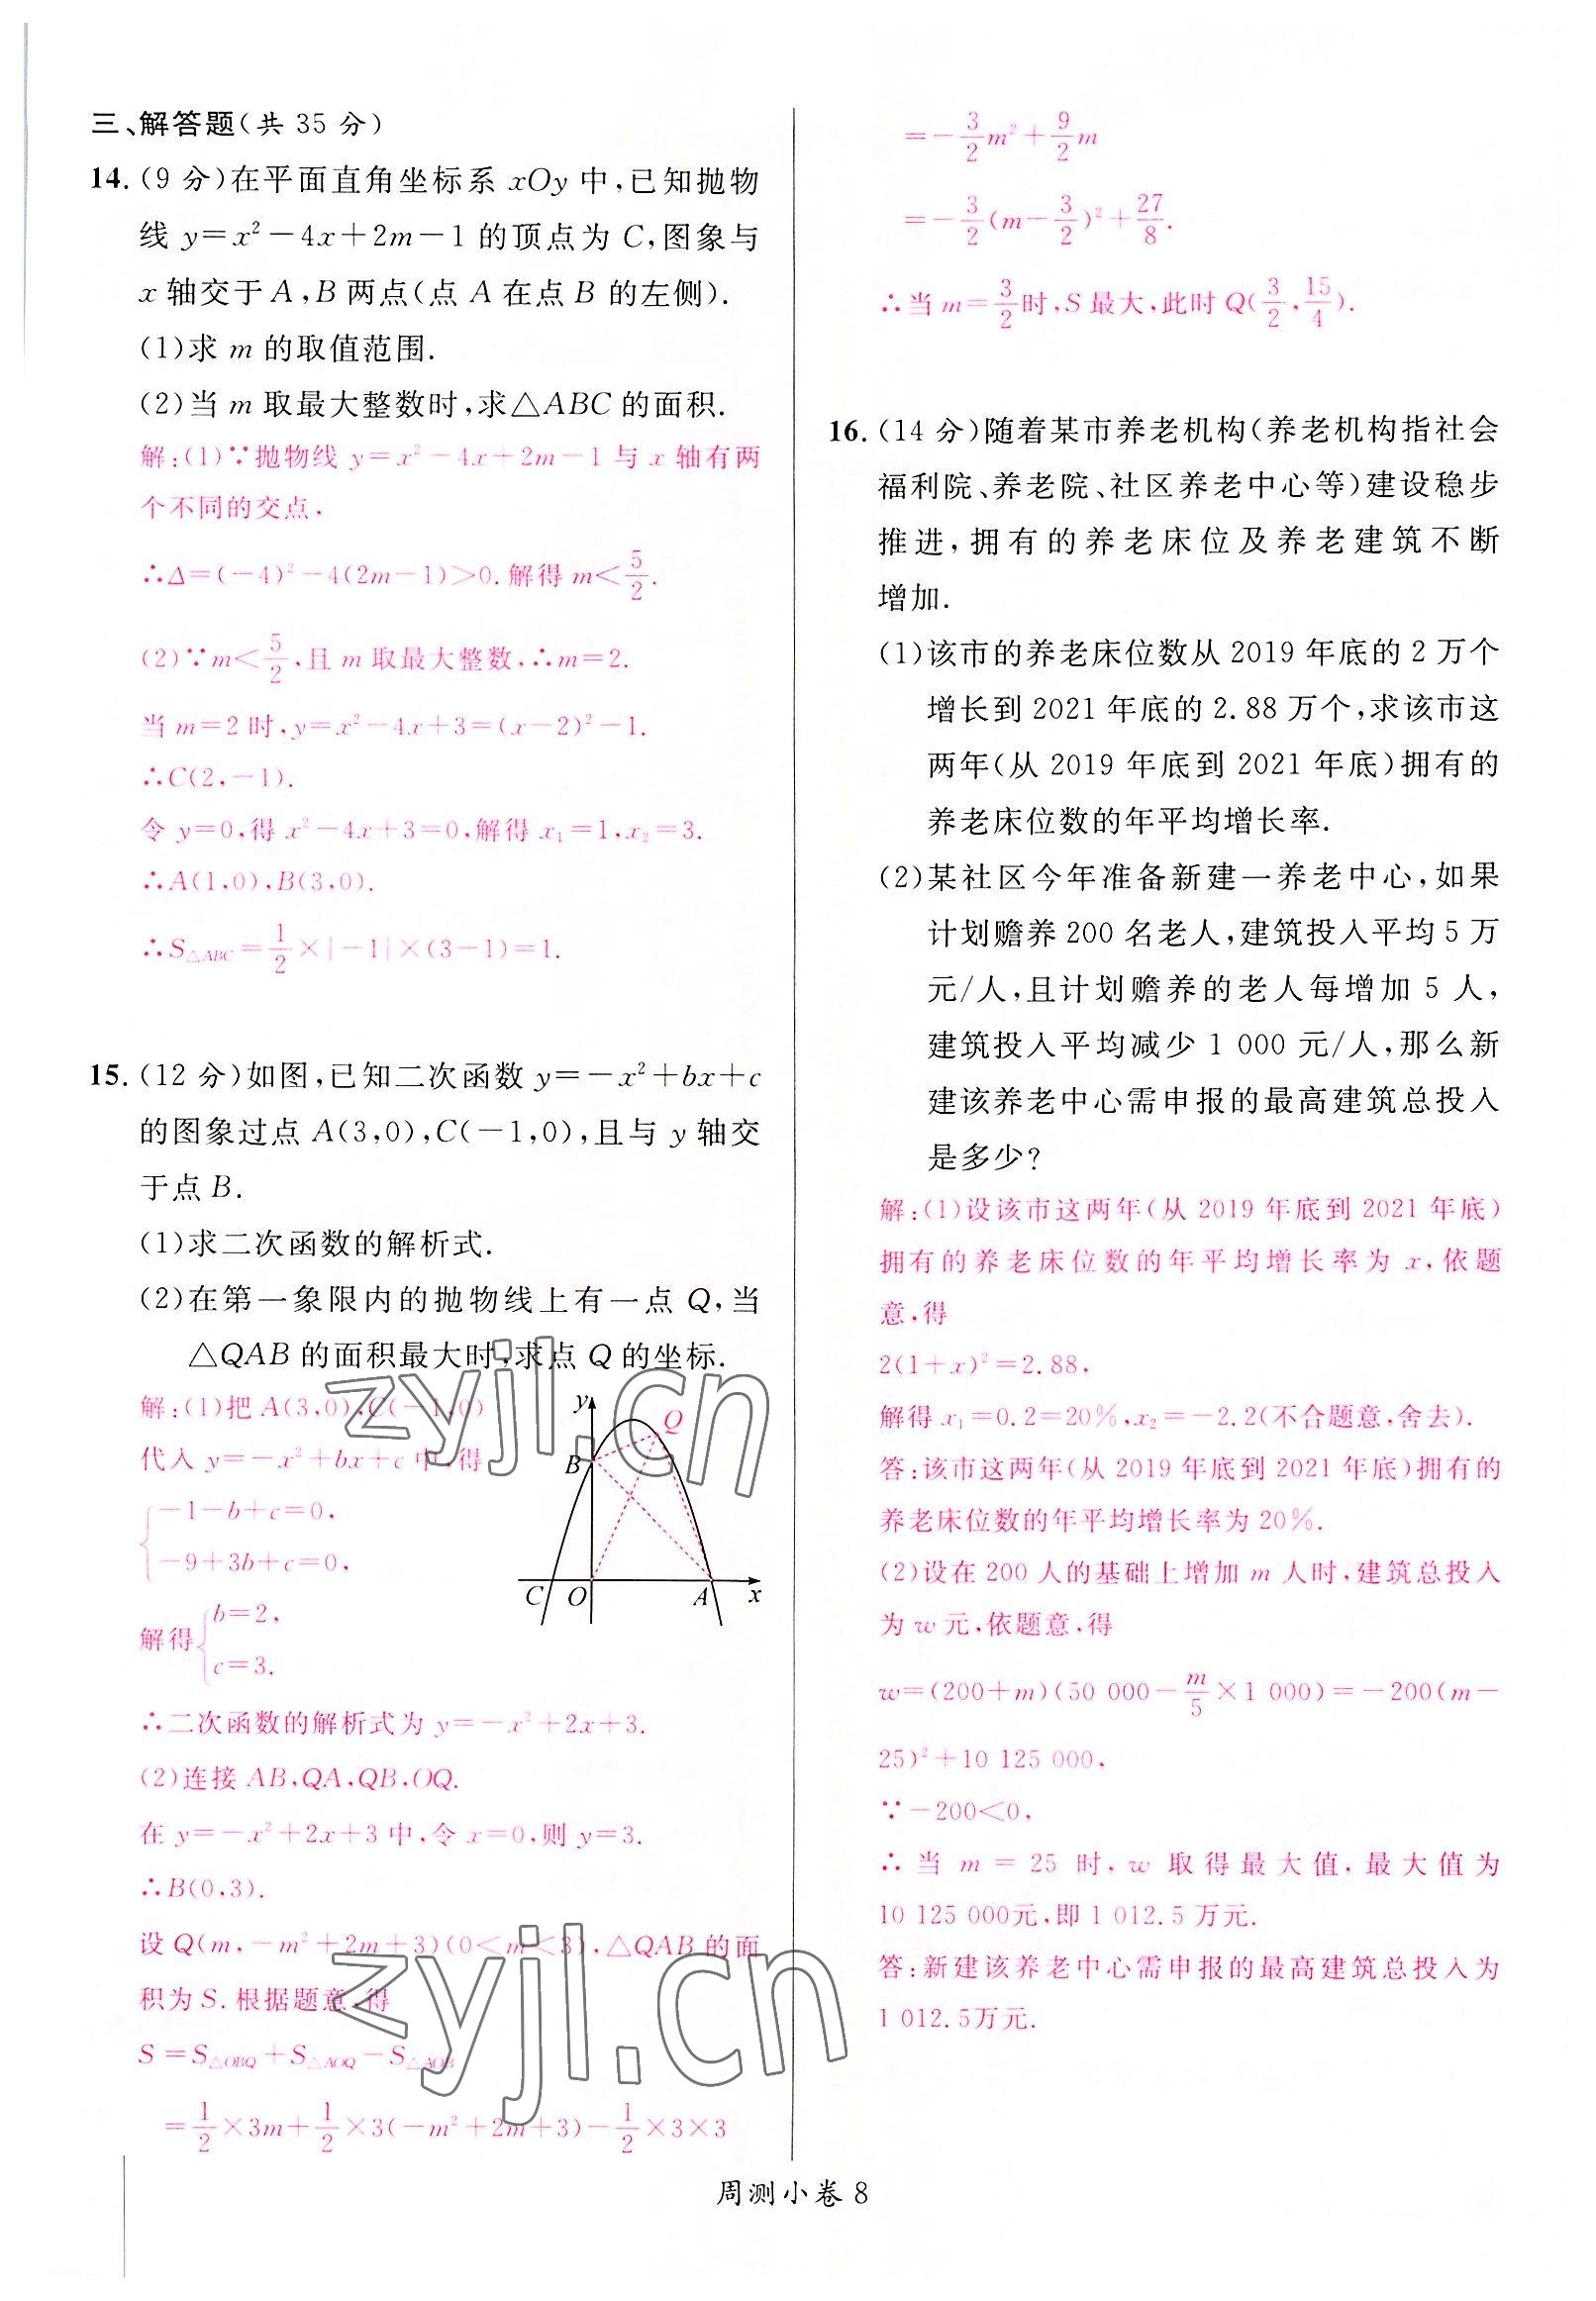 三、解答题(共 35 分)
14. (9 分)在平面直角坐标系 xOy 中,已知抛物
线 y=x²-4x+2m-1 的顶点为 C,图象与
x 轴交于 A,B 两点(点 A 在点 B 的左侧).
(1)求 m 的取值范围.
(2)当 m 取最大整数时,求△ABC 的面积.
解:(1)∵抛物线 y=x²-4x+2m-1 与 x 轴有两
个不同的交点,
∴Δ=(-4)²-4(2m-1)>0.解得 m<5/2.
(2)∵m<5/2,且 m 取最大整数,∴m=2.
当 m=2 时,y=x²-4x+3=(x-2)²-1.
∴C(2,-1).
令 y=0,得 x²-4x+3=0,解得 x₁=1,x₂=3.
∴A(1,0),B(3,0).
∴S△ABC=1/2×|-1|×(3-1)=1.
15. (12 分)如图,已知二次函数 y=-x²+bx+c
的图象过点 A(3,0),C(-1,0),且与 y 轴交
于点 B.
(1)求二次函数的解析式.
(2)在第一象限内的抛物线上有一点 Q,当
△QAB 的面积最大时,求点 Q 的坐标.
解:(1)把 A(3,0),C(-1,0)
代入 y=-x²+bx+c 中,得
{-1-b+c=0,
-9+3b+c=0,
解得{b=2,
c=3.
y
Q
B
C
O
A
x
∴二次函数的解析式为 y=-x²+2x+3.
(2)连接 AB,QA,QB,OQ.
在 y=-x²+2x+3 中,令 x=0,则 y=3.
∴B(0,3).
设 Q(m,-m²+2m+3)(0<m<3),△QAB 的面
积为 S.根据题意,得
S=S△OBQ+S△AOQ-S△AOB
=1/2×3m+1/2×3(-m²+2m+3)-1/2×3×3
=-3/2m²+9/2m
=-3/2(m-3/2)²+27/8.
∴当 m=3/2时,S 最大,此时 Q(3/2,15/4).
16. (14 分)随着某市养老机构(养老机构指社会
福利院、养老院、社区养老中心等)建设稳步
推进,拥有的养老床位及养老建筑不断
增加.
(1)该市的养老床位数从 2019 年底的 2 万个
增长到 2021 年底的 2.88 万个,求该市这
两年(从 2019 年底到 2021 年底)拥有的
养老床位数的年平均增长率.
(2)某社区今年准备新建一养老中心,如果
计划赡养 200 名老人,建筑投入平均 5 万
元/人,且计划赡养的老人每增加 5 人,
建筑投入平均减少 1 000 元/人,那么新
建该养老中心需申报的最高建筑总投入
是多少?
解:(1)设该市这两年(从 2019 年底到 2021 年底)
拥有的养老床位数的年平均增长率为 x,依题
意,得
2(1+x)²=2.88,
解得 x₁=0.2=20%,x₂=-2.2(不合题意,舍去).
答:该市这两年(从 2019 年底到 2021 年底)拥有的
养老床位数的年平均增长率为 20%.
(2)设在 200 人的基础上增加 m 人时,建筑总投入
为 w 元,依题意,得
w=(200+m)(50 000-m/5×1 000)=-200(m-
25)²+10 125 000,
∵-200<0,
∴当 m=25 时,w 取得最大值,最大值为
10 125 000元,即 1 012.5 万元.
答:新建该养老中心需申报的最高建筑总投入为
1 012.5万元.
zyjl.cn
zyjl.cn
周测小卷 8